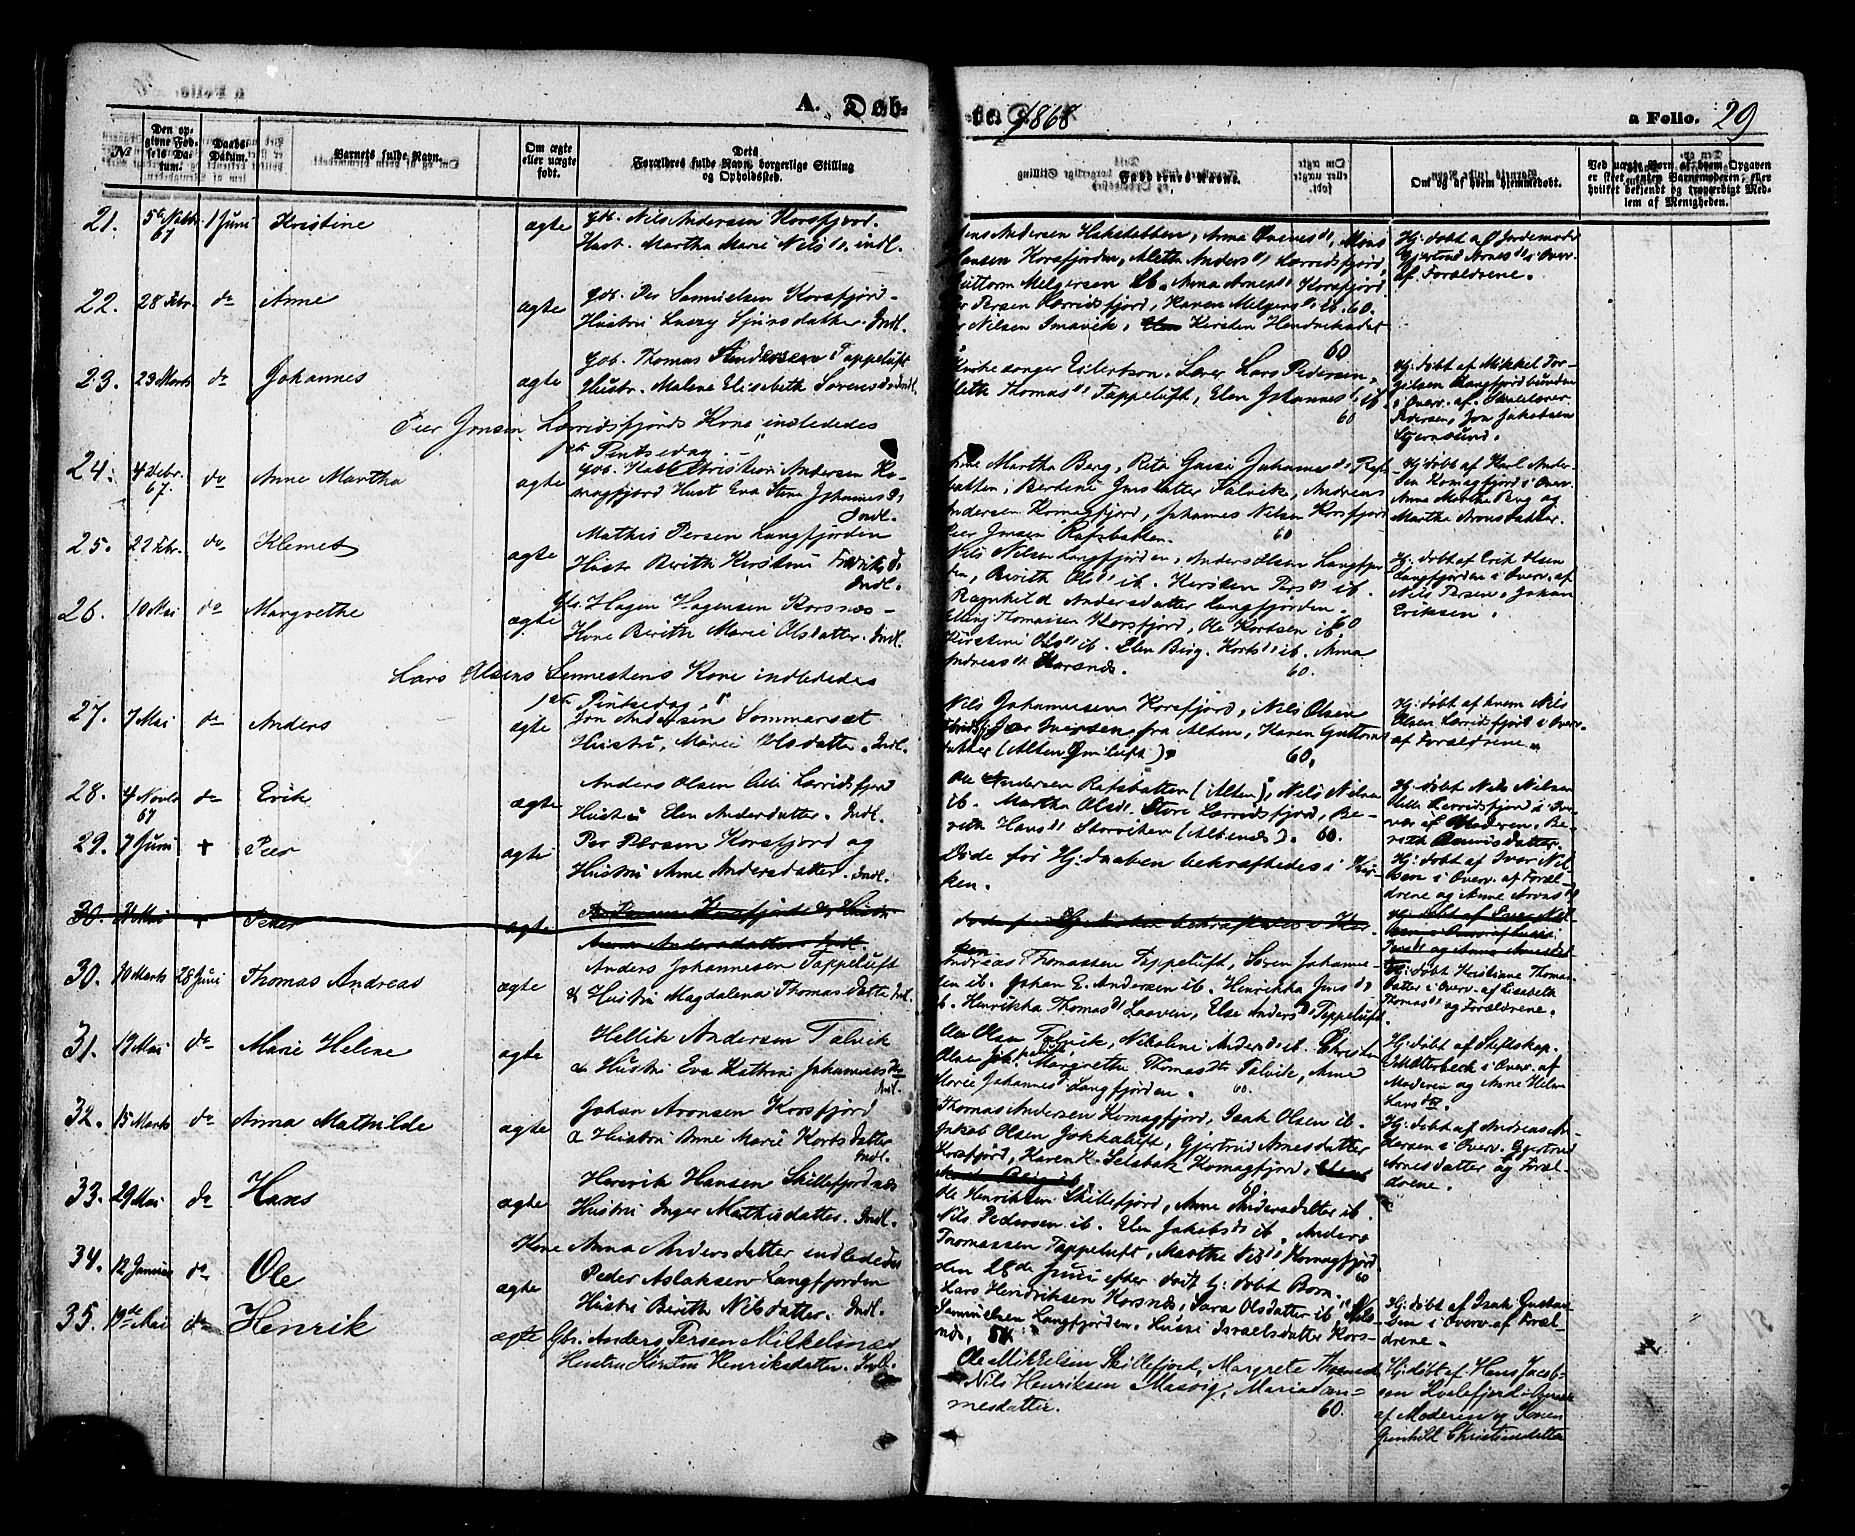 A. Døb-
te. 1868
a Folio. 29
№
Den op-
givne Fød-
sels Da-
tum.
Daabs
Datum.
Barnets fulde Navn.
Om ægte
eller uægte
født.
Dets
Forældres fulde Navn, borgerlige Stilling
og Opholdssted.
Faddernes Navne.
Om og af hvem hjemmedøbt.
Ved uægte Børn, af hvem Opgaven
er skeet, enten Barnemoderen, eller
hvilket bekjendt og troværdigt Med-
lem af Menigheden.
21. 67 1 Juni Kristine ægte Nils Andersen Korsfjord.
Hust. Martha Marie Nilsd. indl.
Andersen Hakstabben, Anna
Hansen Korsfjorden, Alette Andersd. Lærridsfjord,
Hj. døbt af Jordemoder
Gjertrud Arnesd. i Overv.
af Forældrene.
22. 28 Febr. do Anne ægte Per Samuelsen Korsfjord
Hustru Sjursdatter. Indl.
Melgersen ib. Anna Arnesd. Korsfjord
Persen Lærridsfjord, Karen Melgersd. ib. 60.
Nilsen Kirsten Hendriksdat
60
23. 23 Marts do Johannes ægte Thomas Andersen Tappeluft
Hustr. Malene Elisabeth Sørensd. Indl.
Kirkesanger Eilertsen. Lærer Lars Pedersen,
Thomasd. Tappeluft, Elen Johannesd. ib.
60
Hj. døbt af Mikkel Tor-
gilsen Langfjordbunden
i Overv. af Skolelærer
Pedersen, Jon Jakobsen
Stjernsund.
Peer Jonsen Lærridsfjords Kone indlededes
1ste Pintsedag.
24. 4 Debr. 67. do Anne Martha ægte Kristian Andersen Ko-
magfjord Hust Eva Stina Johannesd.
Indl.
Martha Berg, Johannesd. Rafs-
batten, Berdine Jonsdatter Talvik, Andreas
Andersen Komagfjord, Johannes Nilsen Korsfjord
Peer Jonsen Rafsbatten. 60
Hj. døbt af Karl Ander-
sen Komagfjord i Overv.
Anna Martha Berg og
Martha Aronsdatter.
25. 22 Febr. do Klemet ægte Mathis Persen Langfjorden
Hustr Berith Kirstine Fredriksd.
Indl.
Nils Nilsen Langfjorden, Anders Olsen Langfjor
den, Berith Olsd. ib. Kersten Persd. ib.
Ragnhild Andersdatter Langfjorden.
60
Hj. døbt af Erik Olsen
Langfjorden i Overv. af
Nils Persen, Johan
Eriksen.
26. 10 Mai do Margrethe ægte Hagen Hagensen Korsnæs
Kone Berith Marie Olsdatter. Indl.
Elling Thomassen Korsfjord, Ole Kortsen ib.
Kirstine Olsd. ib. Elen Birg. Kortsd. ib. Anna
Andreasd. Korsnæs. 60.
Lars Olsens Kone indlededes
1ste Pintsedag.
27. 7 Mai do Anders ægte Jon Andersen Sommarsæt
Hustru, Marie Olsdatter. Indl.
Nils Johannesen Korsfjord, Nils Olsen
fra Alten, Karen Guttorms
datter (Alten) 60.
Hj. døbt af Nils
Olsen Lærridsfjord i Overv
af Forældrene.
28. 4 Novbr 67 do Erik ægte Anders Olsen Lille Lærridsfjord
Hustru Elen Andersdatter. Indl.
Ole Andersen Rafsbatten (Alten), Nils Nilsen
ib. Martha Olsd. Store Lærridsfjord, Be-
reth Hansd. Storviken (Altenæs). 60.
Hj. døbt af Nils Nilsen
Lille Lærridsfjord i Over
vær af Moderen, Be-
reth
29. 7 Juni + Peer ægte Per Persen Korsfjord og
Hustru Anne Andersdatter. Indl.
Døde før Hj. daaben bekræftedes i Kir-
ken.
Hj. døbt af Ivar Nil-
sen i Overv. af Foræl-
drene og Anne Aronsd.
30. Mai + Peder ægte Per Persen Korsfjord og Hustru
Anne Andersdatter. Indl.
Døde før Hj. daaben bekræftedes i Kir-
ken
30. 10 Marts 28 Juni Thomas Andreas ægte Anders Johannesen Tappeluft
& Hustru Magdalena Thomasdatter Indl.
Andreas Thomassen Tappeluft, Søren Johanne-
sen ib. Johan E. Andersen ib. Henrikka Jonsd.
ib. Henrikka Thomasd. Laaven, Else Andersd. Tappeluft.
Hj. døbt Kristiane Thomas
datter i Overv. af Lisabeth
Thomasd. og Forældrene.
31. 19 Mai do Marie Heline ægte Hellik Andersen Talvik
& Hustru Eva Kathrine Johannesd.
Indl.
Ole Olsen Talvik, Nikoline Andersd. ib. Christen
Olsen Margrethe Thomasd. Talvik, Anne
Marie Johannesd. Langfjorden. 60.
Hj. døbt af Skibskap.
i Overv. af
Moderen og Anne Helene
Hansd.
32. 15 Marts do Anna Mathilde ægte Johan Aronsen Korsfjord
& Hustru Anne Marie Kortsdatter
Indl.
Thomas Andersen Komagfjord, Isak Olsen ib.
Jakob Olsen Jokkaluft, Gjertrud Arnesdatter
Korsfjord, Karen K. Selsbak Komagfjord,
60
Hj. døbt af Andreas An-
dersen i Overv. Gjertrud
Arnesdatter og Foræl-
drene.
33. 29 Mai do Hans ægte Henrik Hansen Skillefjordnæs
Hustru Inger Mathisdatter. Indl.
Ole Henriksen Skillefjord, Anne Andersdatter ib.
Nils Pedersen ib. Elen Jakobsd. ib. Anders
Thomassen Tappeluft, Marthe Nilsd. Komagfjord
60
Kone Anna Andersdatter indlededes
den 28de Juni efter dødt Hj. døbt Barn.
34. 12 Januar do Ole ægte Peder Aslaksen Langfjorden
Hustru Berith Nilsdatter. Indl.
Lars Hendriksen Korsnæs, Sara Olsdatter ib. Nils
Samuelsen Langfjorden. Israelsdatter Kors-
næs,
Hj. døbt af Isak Gustav
sen i Overv. af Foræl-
drene.
35. 19de Mai do Henrik ægte Gbr. Anders Persen Mikkelsnæs
Hustru Kirsten Henriksdatter. Indl.
Ole Mikkelsen Skillefjord, Margrete Thomasd.
Nils Henriksen Masvig, Maria
nesdatter. 60.
Hj. døbt af Hans Jacob-
sen Kvalefjord i Overv.
af Moderen og Konen
Gunhild Christiansdatter